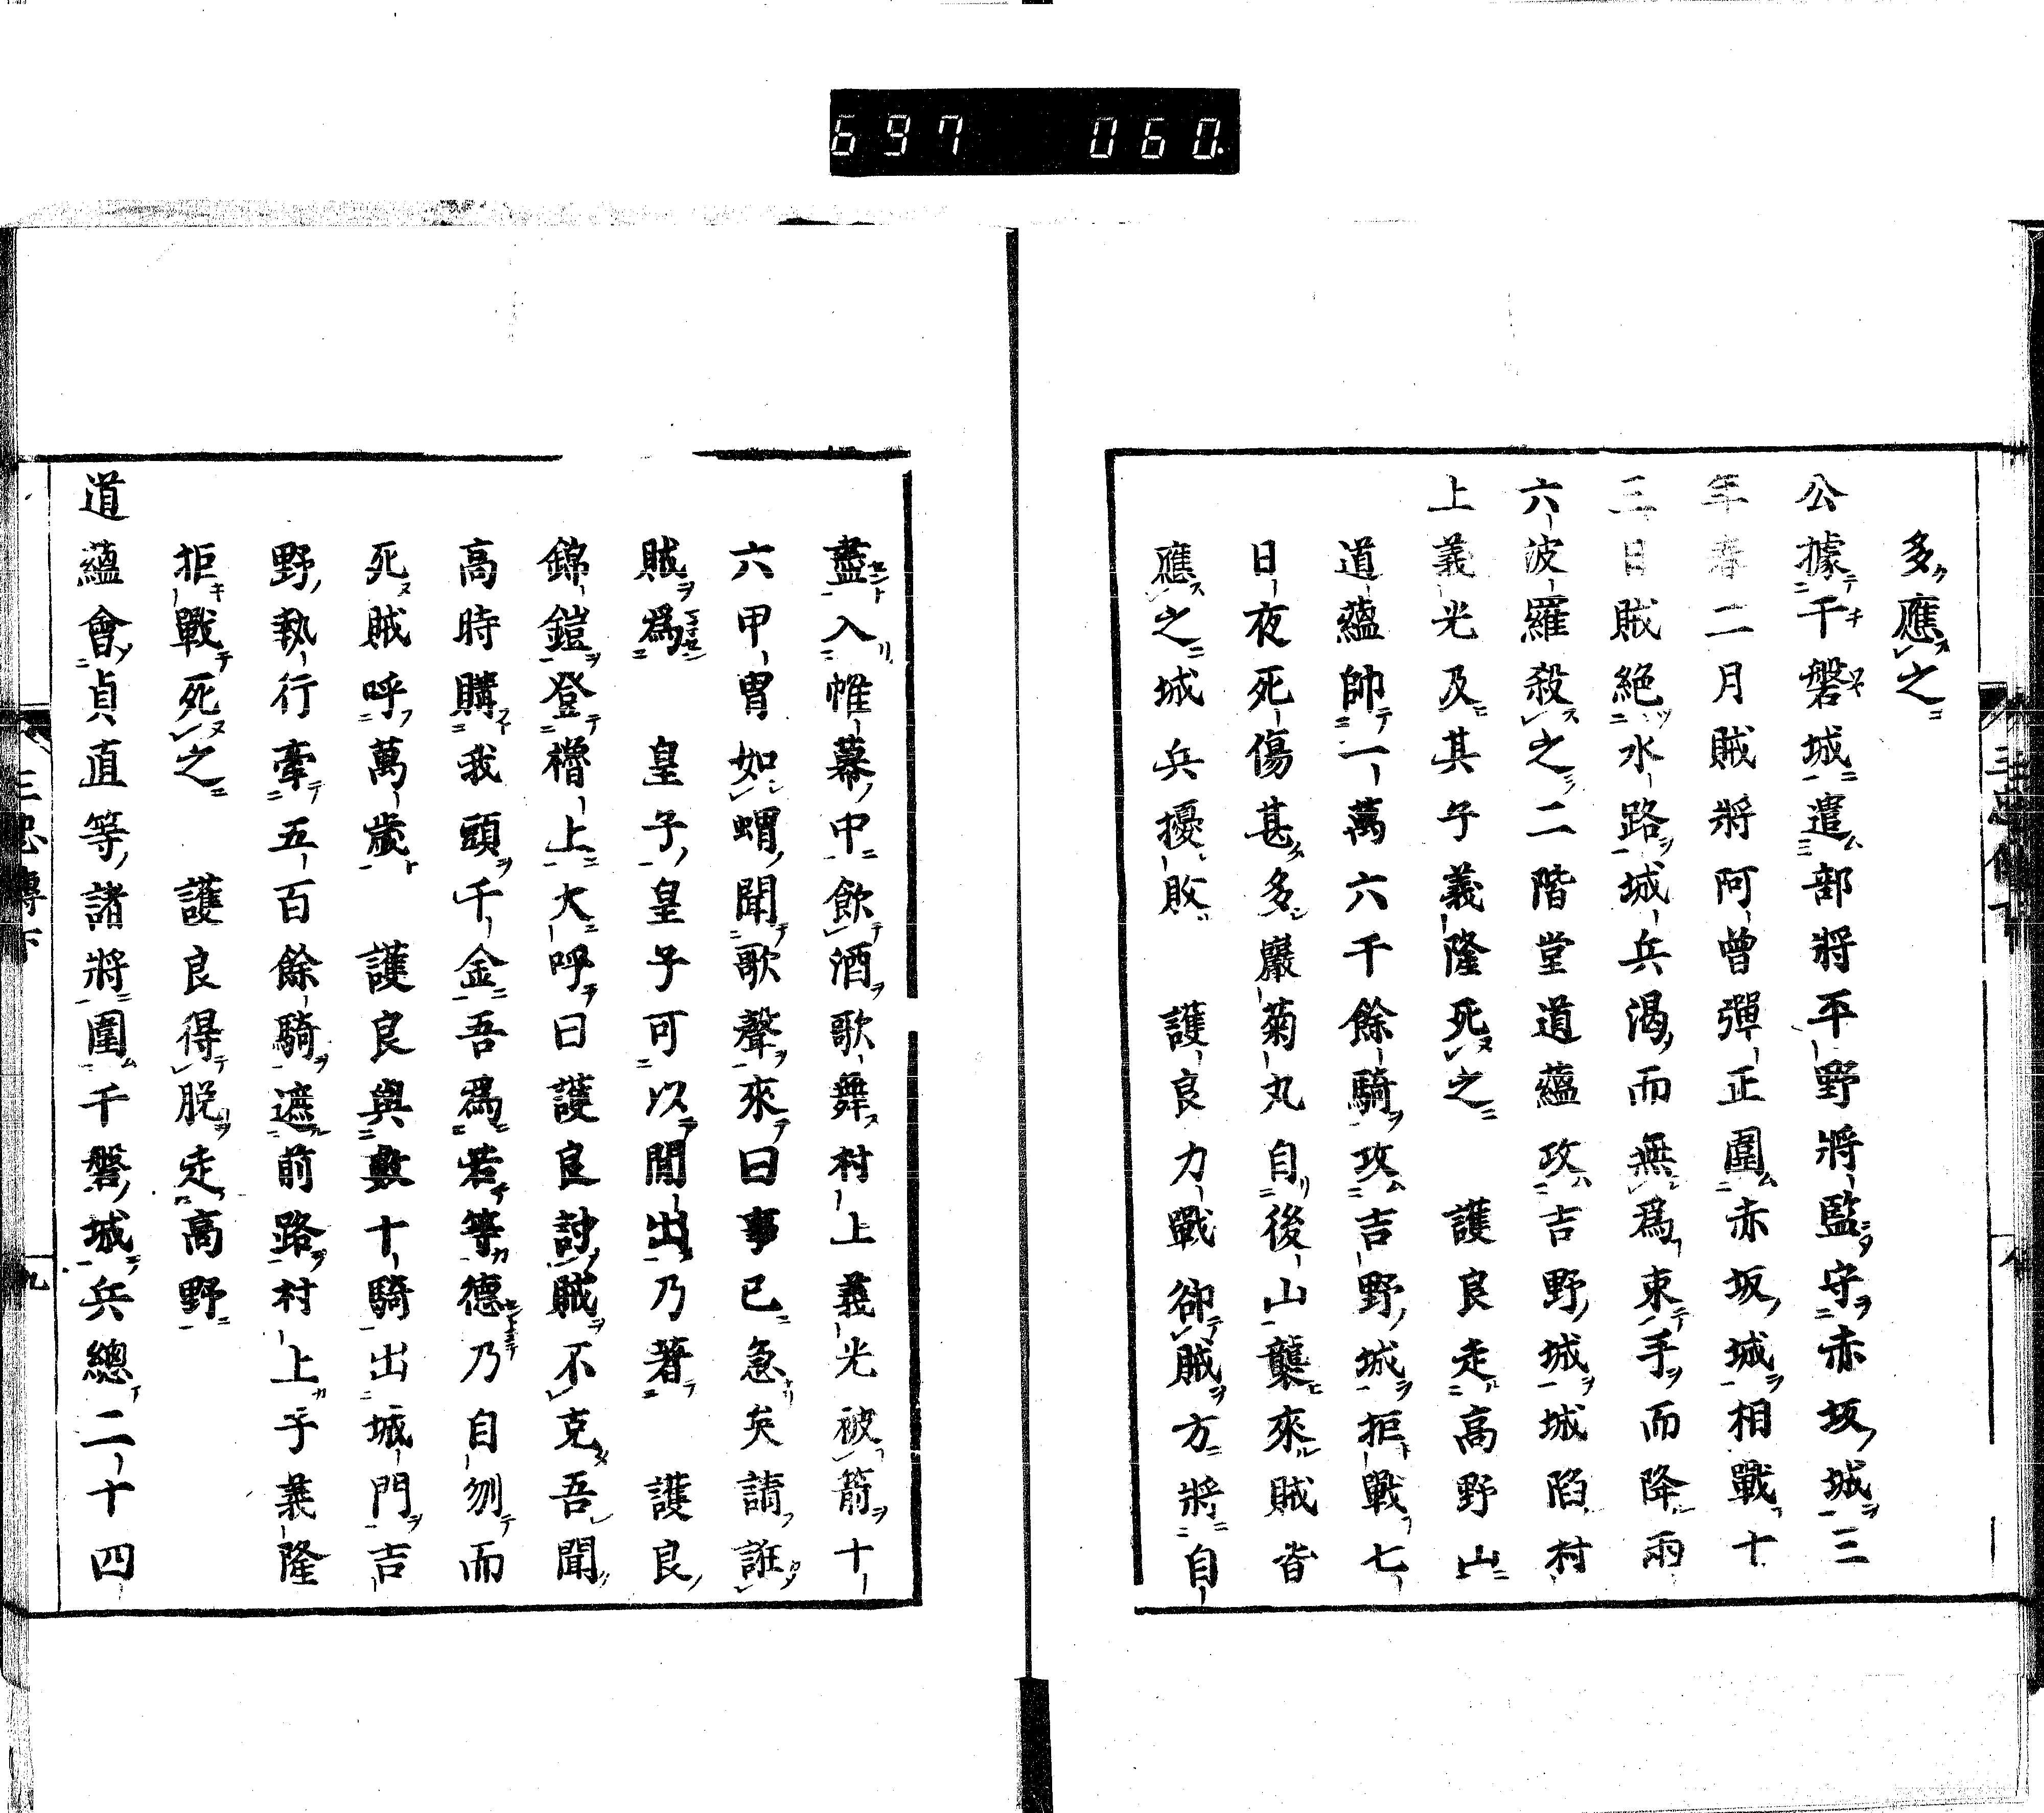 697 060
多應之
公據千磐城遣部將平野將監守赤坂城三
年春二月賊將阿曾彈正圍赤坂城相戰十
三日賊絕水路城兵渴而無爲束手而降兩
六波羅殺之二階堂道蘊攻吉野城城陷村
上義光及其子義隆死之 護良走高野山
道蘊帥一萬六千餘騎攻吉野城拒戰七
日夜死傷甚多巖菊丸自後山襲來賊皆
應之城兵擾敗 護良力戰卻賊方將自
盡入帷幕中飲酒歌舞村上義光被箭十
六甲冑如蝟聞歌聲來曰事已急矣請誑
賊爲 皇子皇子可以間出乃著 護良
錦鎧登櫓上大呼曰護良討賊不克吾聞
高時購我頭千金吾爲若等德乃自刎而
死賊呼萬歲 護良與數十騎出城門吉
野執行牽五百餘騎遮前路村上子義隆
拒戰死之 護良得脱走高野
道蘊會貞直等諸將圍千磐城兵總二十四
三忠傳下
九